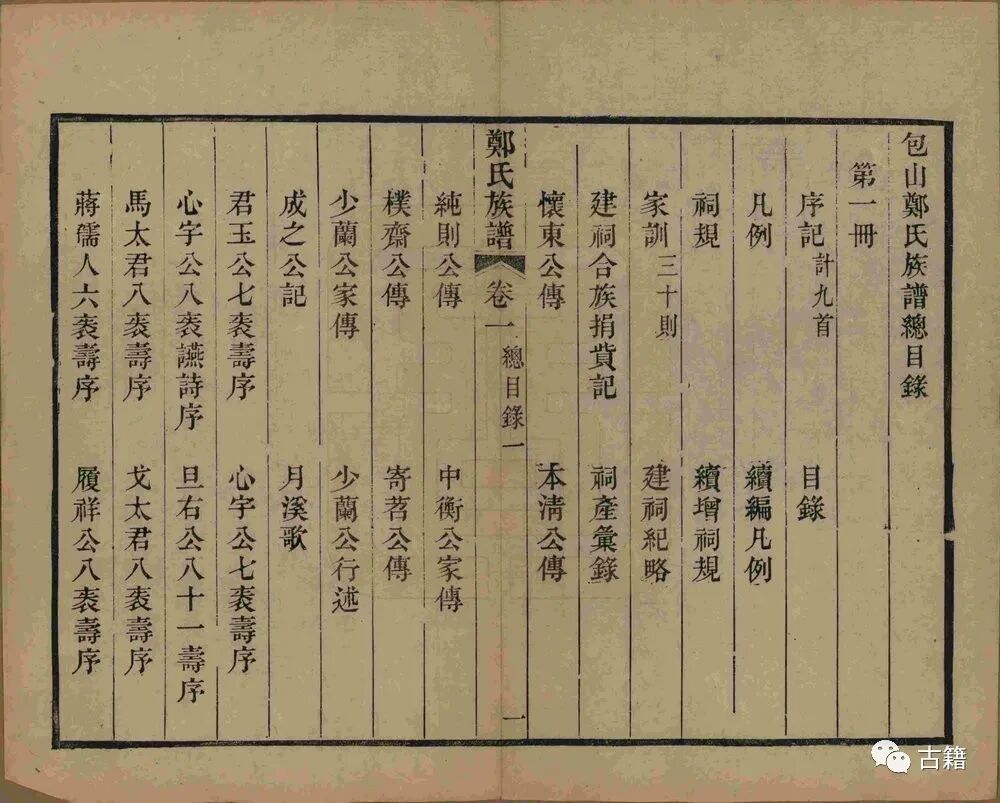 包山鄭氏族譜總目錄
第一冊
序記 計九首 目錄
凡例 續編凡例
祠規 續增祠規
家訓 三十則 建祠紀略
建祠合族捐貲記 祠產彙錄
懷東公傳 本淸公傳
鄭氏族譜 卷一 總目錄一 一
純則公傳 中衡公家傳
樸齋公傳 寄茗公傳
少蘭公家傳 少蘭公行述
成之公記 月溪歌
君玉公七袠壽序 心字公七袠壽序
心字公八袠讌詩序 旦右公八十一壽序
馬太君八袠壽序 戈太君八袠壽序
蔣儒人六袠壽序 履祥公八袠壽序
古籍